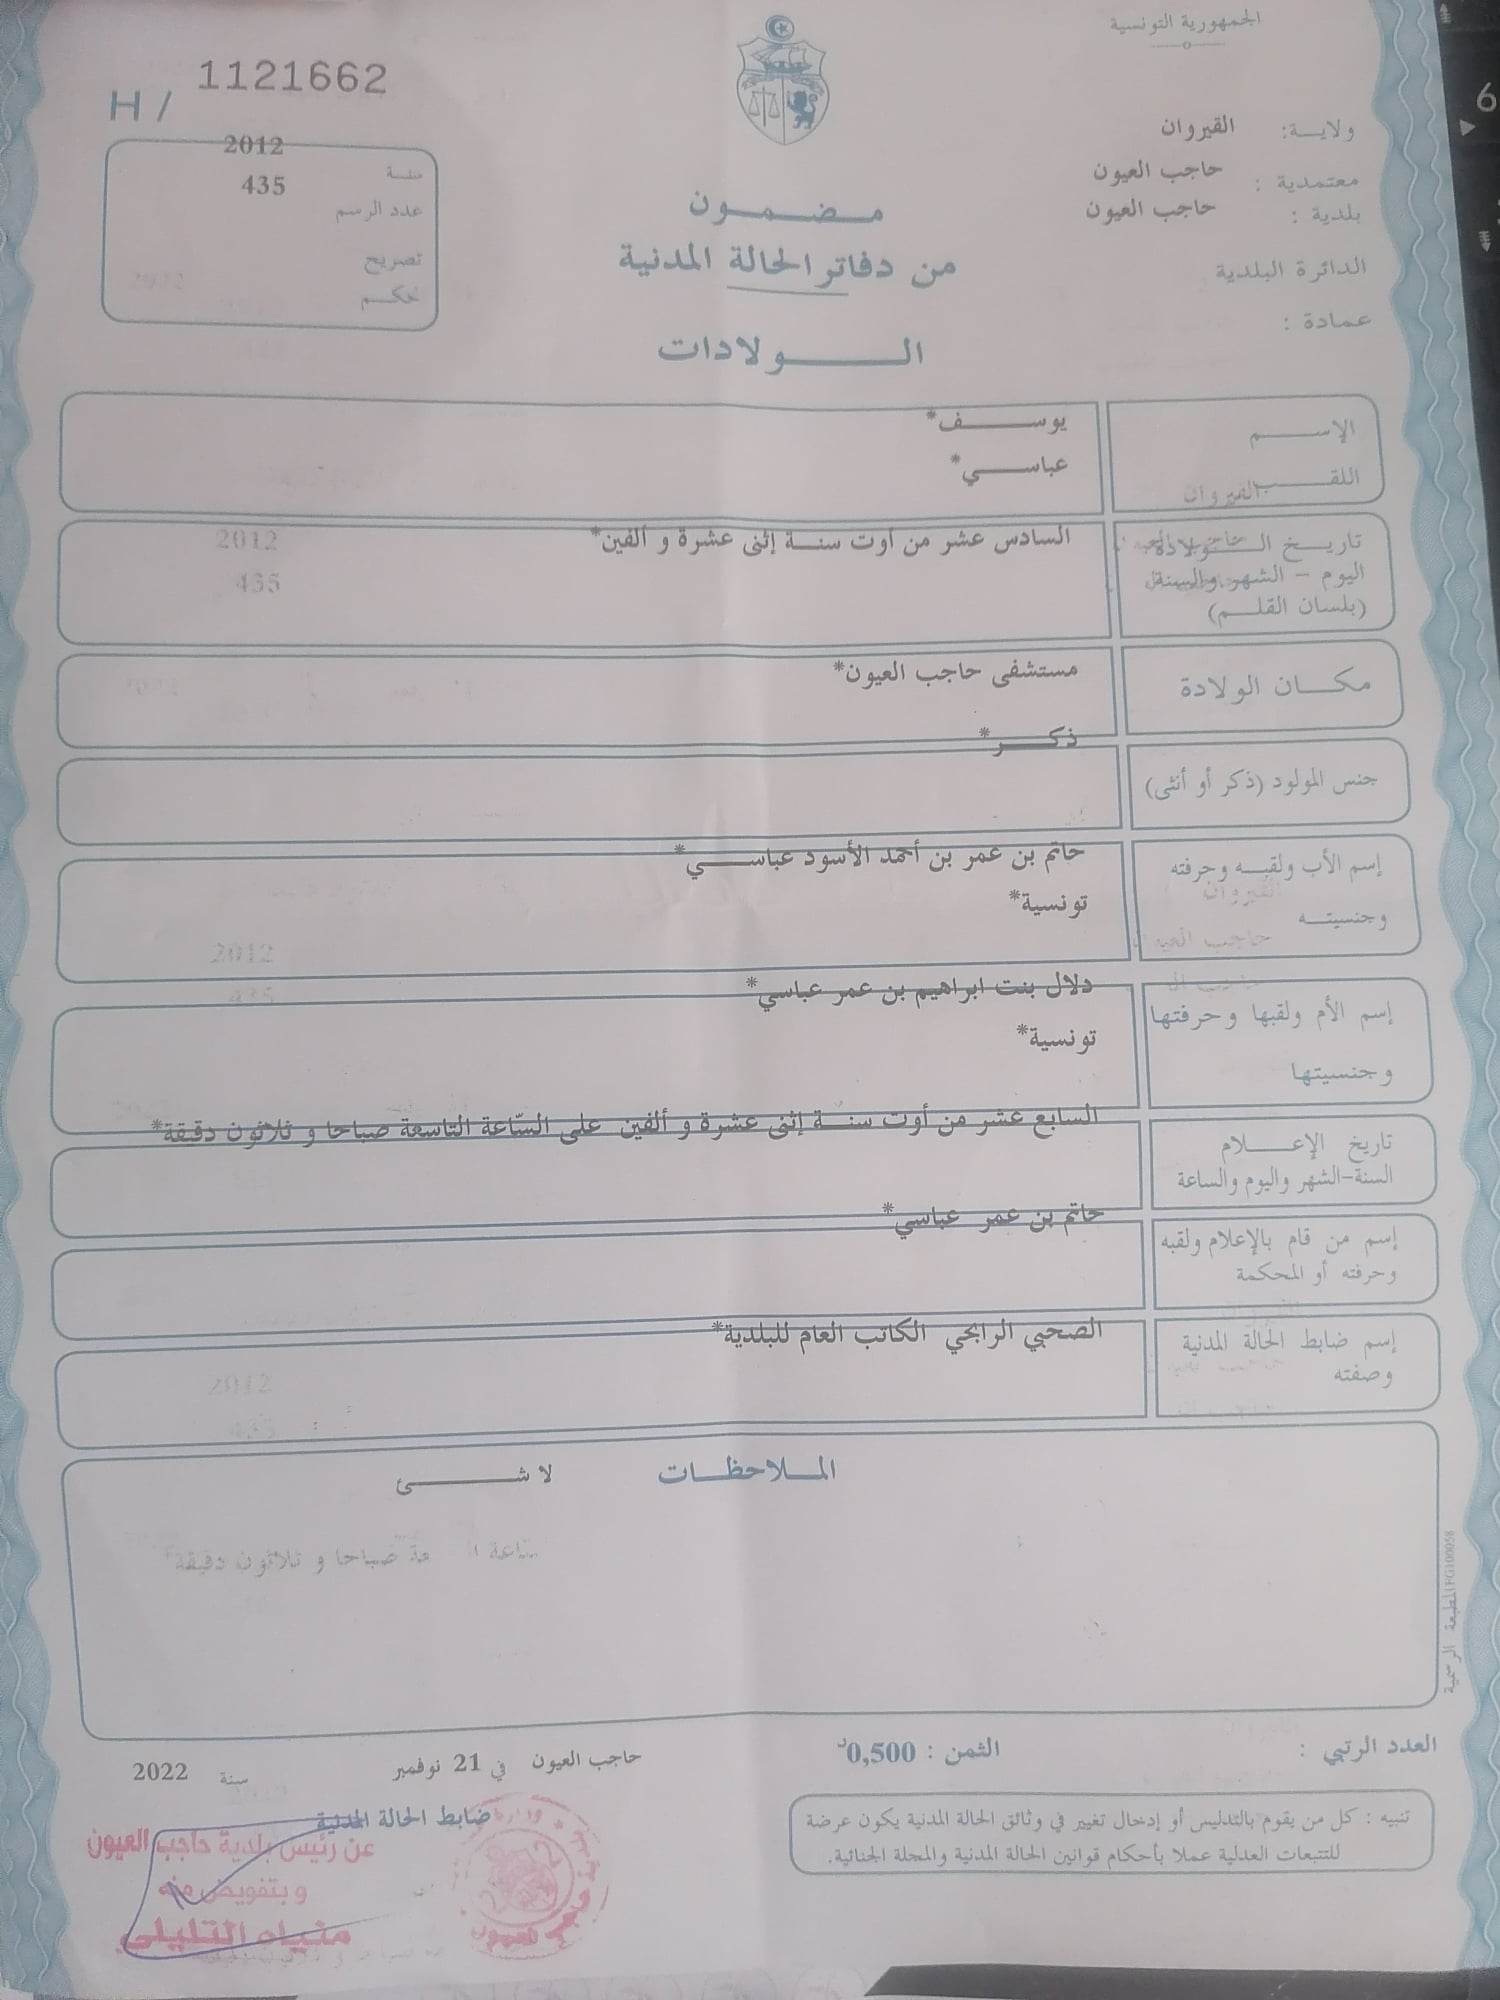 الجمهورية التونسية
H / 1121662
ولايـة: القيروان
معتمدية : حاجب العيون
بلدية : حاجب العيون
الدائرة البلدية
عمادة :
سنـة 2012
عدد الرسم 435
تصريح
حكـم
مـضـمـون
من دفاتر الحالة المدنية
الـــولادات
الإســـم يوســـف*
اللقـــب عباســـي*
تاريـخ الـــولادة السادس عشر من أوت سنـة إثنى عشرة و ألفين*
اليوم – الشهر والسنة
(بلسان القلـم)
مكـان الولادة مستشفى حاجب العيون*
جنس المولود (ذكر أو أنثى) ذكـــر*
إسم الأب ولقبـه وحرفته حاتم بن عمر بن أحمد الأسود عباســـي*
وجنسيتـه تونسية*
إسم الأم ولقبها وحرفتها دلال بنت ابراهيم بن عمر عباسي*
وجنسيتها تونسية*
تاريخ الإعـــلام السابع عشر من أوت سنـة إثنى عشرة و ألفين على السّاعة التاسعة صباحا و ثلاثون دقيقة*
السنة-الشهر واليوم والساعة
إسم من قام بالإعلام ولقبه حاتم بن عمر عباسي*
وحرفته أو المحكمة
إسم ضابط الحالة المدنية الصحبي الرابحي الكاتب العام للبلدية*
وصفته
الملاحظـات لا شـــئ
المطبعة الرسمية FG100058
العدد الرتبي :
الثمن : 0,500د
حاجب العيون في 21 نوفمبر سنة 2022
ضابط الحالة المدنية
تنبيه : كل من يقوم بالتدليس أو إدخال تغيير في وثائق الحالة المدنية يكون عرضة
للتتبعات العدلية عملا بأحكام قوانين الحالة المدنية والمجلة الجنائية.
عن رئيس بلدية حاجب العيون
وبتفويض منه
التليلي